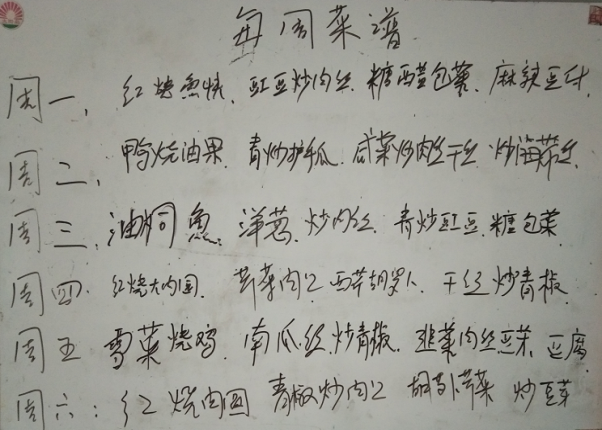 每周菜谱
周一、红烧鱼块、豇豆炒肉丝、糖醋包菜、麻辣豆付
周二、鸭子烧油果、青炒护瓜、咸菜炒肉丝干丝、炒海带丝
周三、油焖鱼、洋葱、炒肉丝、青炒豇豆、糖包菜
周四、红烧大肉园、芹菜肉丝、西芹胡萝卜、干丝炒青椒
周五 雪菜烧鸡、南瓜丝炒青椒、韭菜肉丝豆芽、豆腐
周六：红烧肉园 青椒炒肉丝 胡萝卜芹菜 炒豆芽